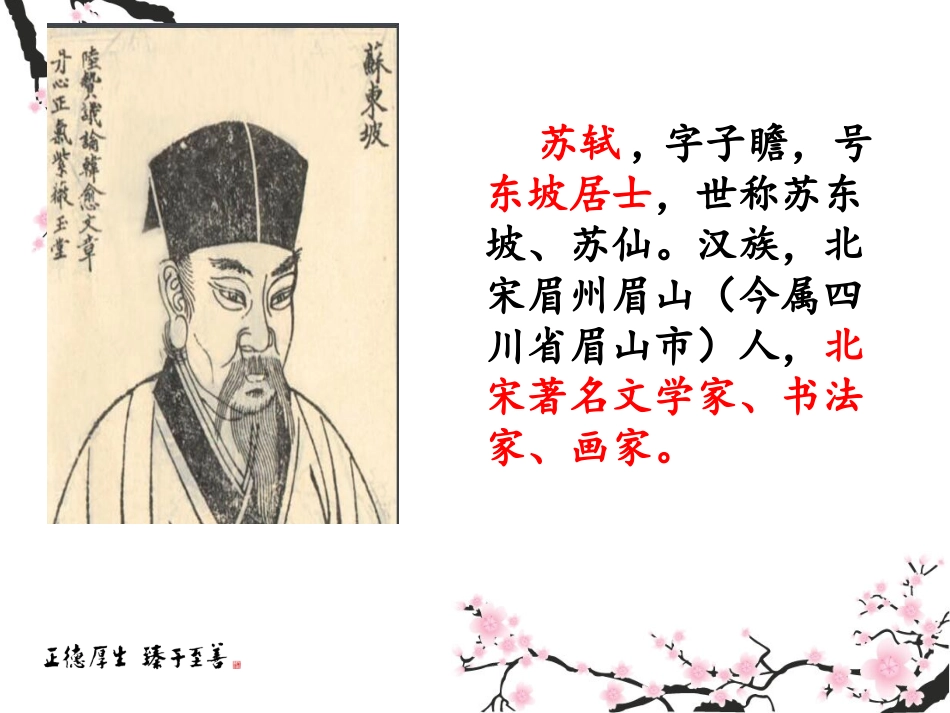 蘇東坡
陸贄議論韓愈文章
丹心正氣紫薇玉堂
苏轼，字子瞻，号
东坡居士，世称苏东
坡、苏仙。汉族，北
宋眉州眉山（今属四
川省眉山市）人，北
宋著名文学家、书法
家、画家。
正德厚生 臻于至善